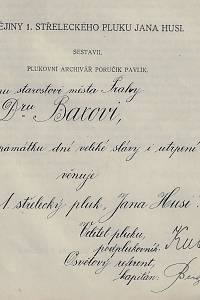 ĚJINY 1. STŘELECKÉHO PLUKU JANA HUSI.
SESTAVIL
PLUKOVNÍ ARCHIVÁŘ PORUČÍK PAVLÍK.
nu starostovi města Prahy
Dru Baxovi,
památku dní veliké slávy i utrpení
věnuje
1. střelecký pluk „Jana Husi“.
Velitel pluku,
podplukovník:
Osvětový referent,
kapitán: